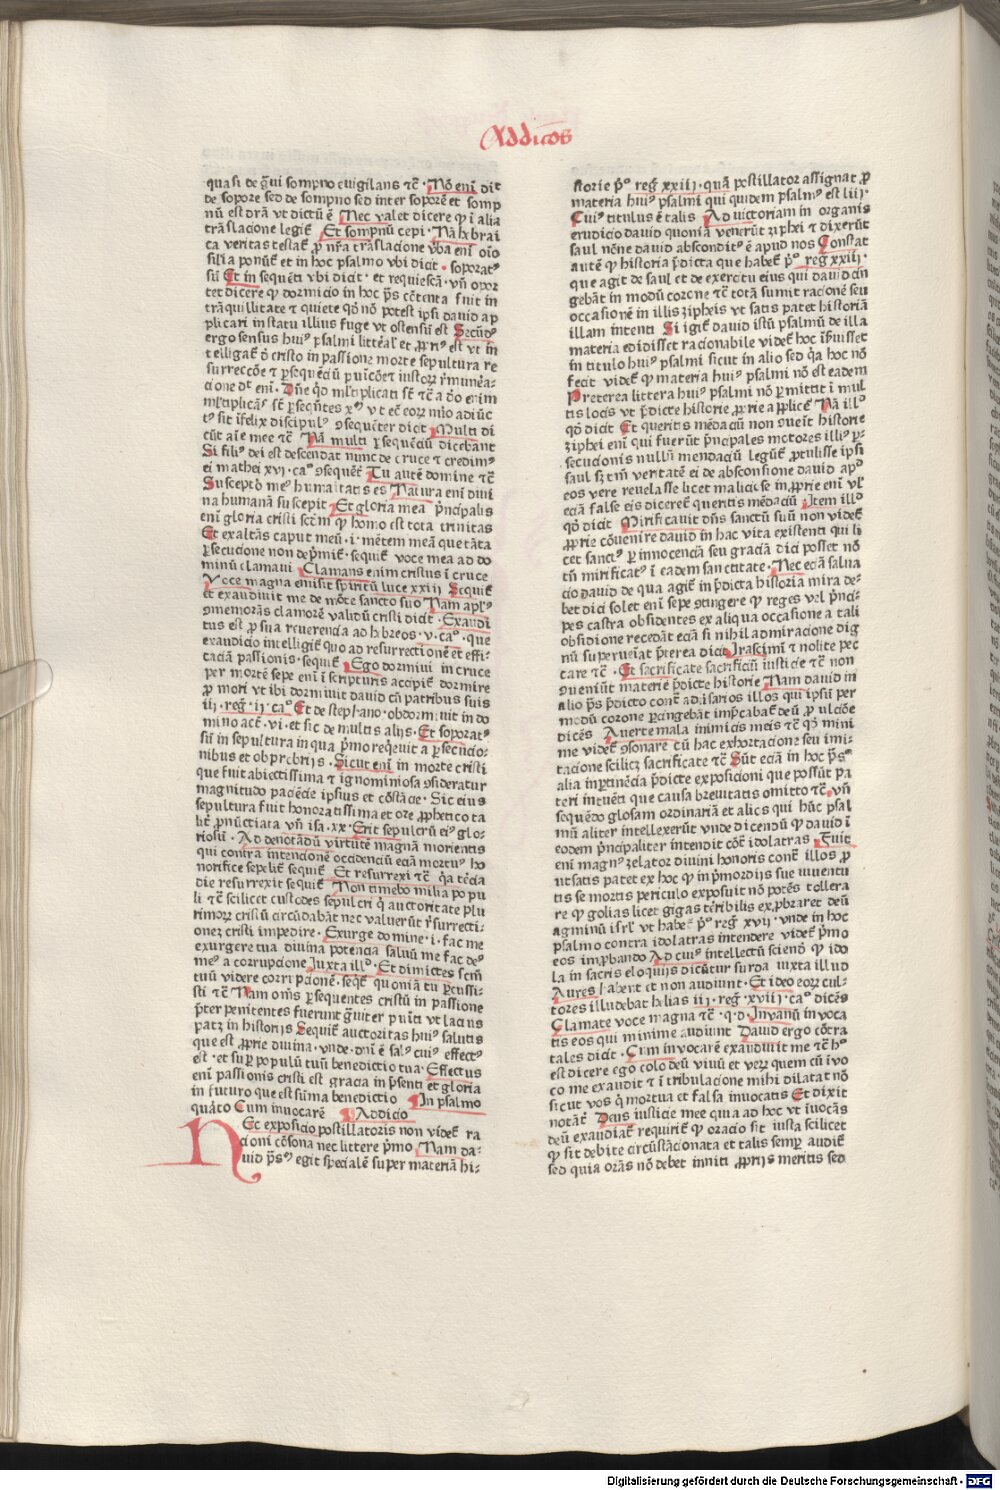 Addic̄ōs
quasi de g̃ui sompno euigilans ⁊c̄ · Nō em̄ dit
de sopore sed de sompno sed inter soporē et somp
nū est drā vt dictū ē Nec valet dicere ꝙ ĩ alia
trāslacione legit̃ Et sompnū cepi · Nā hebrai
ca veritas testat̃ ꝓ nr̃a trāslacione v̾ba em̄ oīo
silīa ponūt̃ et in hoc psalmo vbi dicit · soporatꝰ
sū Et in sequēti vbi dicit · et requiescā · vn̄ opor
tet dicere ꝙ dormicio in hoc ps̄ cōtenta fuit in
trāquillitate ⁊ quiete qd̄ nō potest ipsi dauid ap
plicari in statu illius fuge vt ostensū est Secūdꝰ
ergo sensus huiꝰ psalmi litt̃alꝭ et ꝓpriꝰ est vt in
telligat̃ d̄ cristo in passione morte sepultura re
surrecc̄ōe ⁊ ꝑsequēciū puīcōe ⁊ iustoꝝ r̄munēa-
cione dt̄ em̄ · Dn̄e qd̄ ml̄tiplicati st̄ ⁊c̄ a dō enim
ml̄tiplicāt̃ st̄ ꝑseqn̄tes xꝰ vt eē eoꝝ vnīo adiūc
tꝰ sit ĩfelix discipulꝰ ꝯsequēter dict Multi di
cūt aīe mee ⁊c̄ Nā multi ꝑsequēciū dicebant
Si filiꝰ dei est descendat nunc de cruce ⁊ credimꝰ
ei mathei xvi · caº ꝯsequēt̃ Tu autē domine ⁊c̄
Susceptō meꝰ humaītatis es Natura em̄ diui
na humanā suscepit Et gloria mea p̄ncipalis
em̄ gloria cristi scd̄m ꝙ homo est tota trinitas
Et exaltās caput meū · i · mētem meā que tāta
ꝑsecucione non dep̄mit̃ · sequit̃ voce mea ad do
minū clamaui Clamans enim cristus ĩ cruce
Voce magna emisit spiritū luce xxiij Sequit̃
et exaudiuit me de mōte sancto suo Nam aplꝰ
ꝯmemorās clamorē validū cristi dicit · Exaudi
tus est ꝓ sua reuerencia ad hebreos · v · caº · que
exaudicio intelligit̃ quo ad resurrectionē et effi-
caciā passionis · sequit̃ Ego dormiui in cruce
per mortē sepe em̄ ĩ scripturis accipit̃ dormire
ꝓ mori vt ibi dormiuit dauid cū patribus suis
iij · reg̃ · ij · caº Et de stephano · obdormiuit in do
mino act̄ · vi · et sic de multis alijs · Et soporatꝰ
sū in sepultura in qua p̄mo req̄euit a ꝑsecucio-
nibus et obprobrijs · Sicut em̄ in morte cristi
que fuit abiectissima ⁊ ignominiosa ꝯsideratur
magnitudo paciēcie ipsius et cōstācie · Sic eius
sepultura fuit honoratissima et ore ꝓphetico ta
lit̃ ꝓnūctiata vn̄ isa · xx · Erit sepulcrū eiꝰ glo-
riosū · Ad denotādū virtutē magnā morientis
qui contra intencionē occidenciū eciā mortuꝰ ho
norifice sepelit̃ sequit̃ Et resurrexi ⁊c̄ q̃a tercia
die resurrexit sequit̃ Non timebo milia popu
li ⁊c̄ scilicet custodes sepulcri q̃ auctoritate plu
rimoꝝ cristū circūdabāt nec valuerūt r̄surrecti-
onez cristi impedire · Exurge domine · i · fac me
exurgere tua diuina potencia saluū me fac deꝰ
meꝰ a corrupcione Iuxta illᵈ · Et dimittes scm̄
tuū videre corrupcionē · seqt̃ quoniā tu ꝑcussi-
sti ⁊c̄ Nam om̄s ꝑsequentes cristū in passione
p̄ter penitentes fuerunt g̃uiter puīti vt lacius
patꝫ in historijs Sequit̃ auctoritas huiꝰ salutis
que est ꝓprie diuina · vnde · dn̄i ē salꝰ cuiꝰ effectꝰ
est · et sup̲ populū tuū benedictio tua · Effectus
em̄ passionis cristi est gracia in p̄senti et gloria
in futuro que est sūma benedictio In psalmo
quarto Cum inuocarē Addicio
NEc exposicio postillatoris non videt̃ ra
cioni cōsona nec littere p̄mo Nam da-
uid p̄sᵒ egit specialē super materiā hi-
storie pº reg̃ xxiij · quā postillator assignat ꝓ
materia huiꝰ psalmi qui quidem psalmꝰ est liij ·
Cuiꝰ titulus ē talis Ad victoriam in organis
erudicio dauid quoniā venerūt ziphei ⁊ dixerūt
saul nōne dauid absconditꝰ ē apud nos Constat
autē ꝙ historia p̄dicta que habet̃ pº reg xxiij ·
que agit de saul et de exercitu eius qui dauid cin
gebāt in modū corone ⁊c̄ totā sumit racionē seu
occasionē in illis zipheis vt satis patet historiā
illam intenti Si igit̃ dauid istū psalmū de illa
materia edidisset racionabile videt̃ hoc īseruisset
in titulo huiꝰ psalmi sicut in alio sed q̃a hoc nō
fecit videt̃ ꝙ materia huiꝰ psalmi nō est eadem
Preterea littera huiꝰ psalmi nō ꝑmittit ĩ mul
tis locis vt p̄dicte historie ꝓprie applicet̃ Nā illᵒ
qd̄ dicit Et queritis mēdaciū non ꝯuēit historie
ziphei em̄ qui fuerūt p̄ncipales motores illiꝰ ꝑ-
secucionis nullū mendaciū legūt̃ ꝓtulisse ipsi
saul sꝫ tm̄ veritatē ei de absconsione dauid apᵈ
eos vere reuelasse licet maliciose inꝓprie em̄ vl̓
eciā false eis diceret̃ queritis mēdaciū Item illᵒ
qd̄ dicit Mirificauit dn̄s sanctū suū non videt̃
ꝓprie cōuenire dauid in hac vita existenti qui li
cet sanctꝰ ꝑ innocenciā seu graciā dici posset nō
tn̄ mirificatꝰ ĩ eadem sanctitate · Nec eciā salua
cio dauid de qua agit̃ in p̄dicta historia mira de-
bet dici solet em̄ sepe ꝯtingere ꝙ reges vel p̄nci-
pes castra obsidentes ex aliqua occasione a tali
obsidione recedāt eciā si nihil admiracione dig
nū superueīat p̄terea dicit Irascimi ⁊ nolite pec
care ⁊c̄ · Et sacrificate sacrificiū iusticie ⁊c̄ non
ꝯueniūt materie p̄dicte historie Nam dauid in
alio ps̄ p̄dicto cont̃ aduersarios illos qui ipsū per
modū corone ꝑcingebāt imp̄cabat̃ deū ꝓ ulcōe
dicēs Auerte mala inimicis meis ⁊c̄ qᵈ mini
me videt̃ ꝯsonare cū hac exhortacione seu imi-
tacione scilicꝫ sacrificate ⁊c̄ Sūt eciā in hoc p̄sᵒ
alia inꝑtinēcia p̄dicte exposicioni que possūt pa
teri intuēti que causa breuitatis omitto ⁊c̄ · vn̄
sequēdo glosam ordinariā et alios qui hūc psal
mū aliter intellexerūt vnde dicendū ꝙ dauid ĩ
eodem p̄ncipaliter intendit cōt̃ idolatras Fuit
em̄ magnꝰ zelator diuini honoris cont̃ illos ꝓ
ut satis patet ex hoc ꝙ in p̄mordijs sue iuuentu
tis se mortis periculo exposuit nō potēs tollera
re ꝙ golias licet gigas t̃ribilis exꝓbraret deū
agminū isrl̓ vt habet̃ pº reg̃ xvij · vnde in hoc
psalmo contra idolatras intendere videt̃ p̄mo
eos imꝓbando Ad cuiꝰ intellectū sciend̄ ꝙ ido
la in sacris eloquijs dicūtur surda iuxta illud
Aures habent et non audiunt · Et ideo eoꝝ cul-
tores illudebat helias iij · reg̃ · xviij · caº dicēs
Clamate voce magna ⁊c̄ · q · d · Inuanū inuoca
tis eos qui minime audiunt Dauid ergo cōtra
tales dicit · Cum inuocarē exaudiuit me ⁊c̄ hᵒ
est dicere ego colo deū viuū et veꝝ quem cū īuo
co me exaudit ⁊ ĩ tribulacione mihi dilatat nō
sicut vos q̃ mortua et falsa inuocatis Et dixit
notāt̃ Deus iusticie mee quia ad hoc vt īuocās
deū exaudiat̃ requirit̃ ꝙ oracio sit iusta scilicet
ꝙ sit debite circūstācionata et talis semꝑ audit̃
sed quia orās nō debet inniti ꝓprijs meritis sed
Digitalisierung gefördert durch die Deutsche Forschungsgemeinschaft - DFG